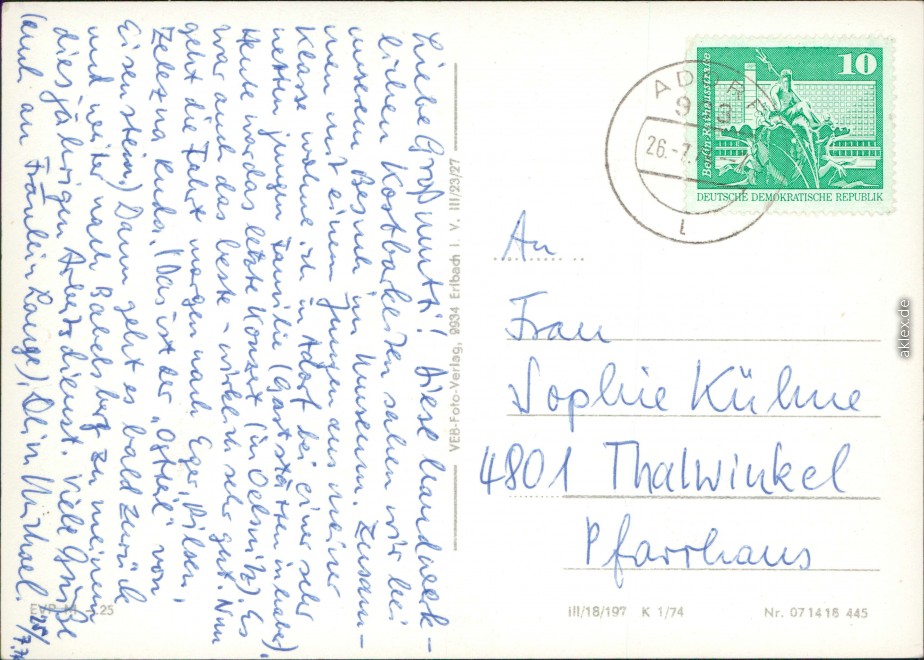 Liebe Großmutti! Diese handwerk-
lichen Kostbarkeiten sahen wir bei
unserem Besuch im Museum. Zusam-
men mit einem Jungen aus meiner
Klasse wohne ich in Adorf bei einer sehr
netten jungen Familie (Gaststätten inhaber).
Heute war das letzte Konzert (in Oelsnitz). Es
war auch das beste - wirklich sehr gut. Nun
geht die Fahrt morgen nach Eger, Pilsen,
Zelezna Ruda. (Das ist der "Ostteil" von
Eisenstein.) Dann geht es bald zurück
und weiter nach Babelsberg zu meinem
diesjährigen Arbeitsdienst. Viele Grüße
(auch an Fräulein Lange), Dein Michael.
25/7.74
VEB-Foto-Verlag, 9934 Erlbach i. V. III/23/27
EVP M -.25
ADORF
99
26.-7.
l
10
Berlin Rathausstraße
DEUTSCHE DEMOKRATISCHE REPUBLIK
An
Frau
Sophie Kühne
4801 Thalwinkel
Pfarrhaus
III/18/197 K 1/74 Nr. 071418 445
aklex.de